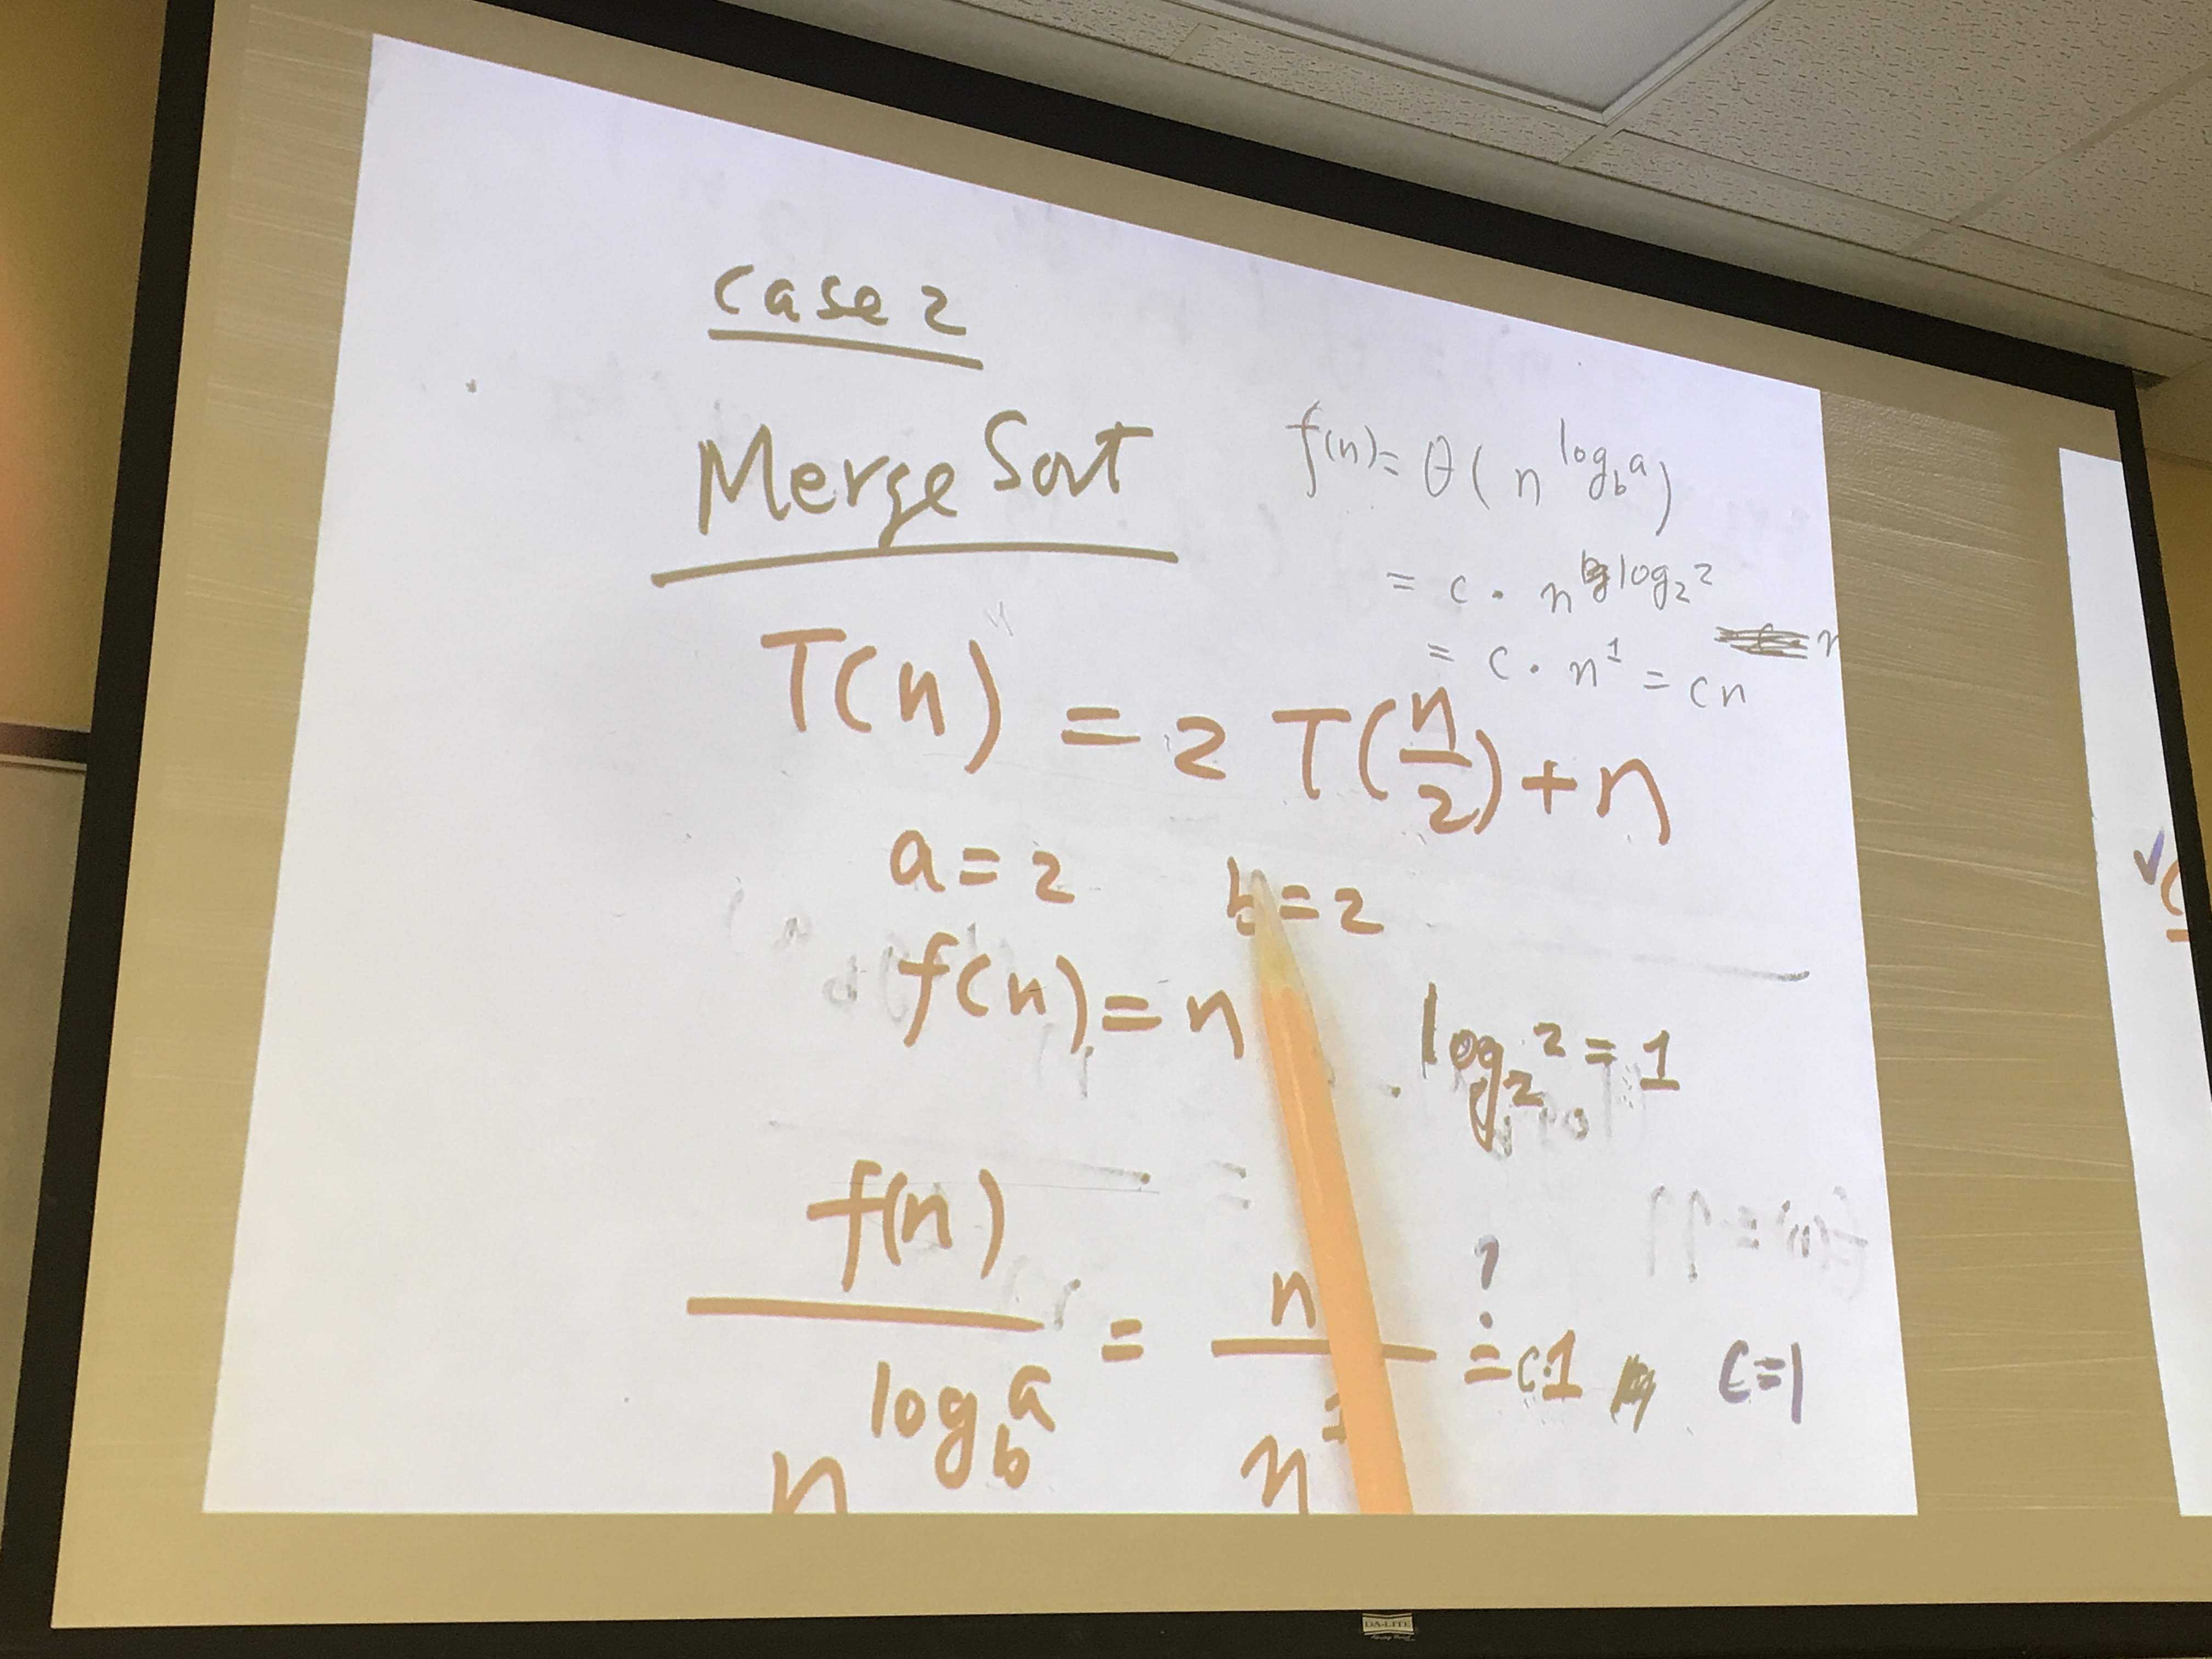 case 2
Merge Sort
f(n) = θ( n^{log_b a} )
= c · n^{log_2 2}
= c · n^1 = cn
T(n) = 2 T(n/2) + n
a = 2 b = 2
f(n) = n
log_2 2 = 1
f(n) / n^{log_b a} = n / n^1 ?= c·1 c=1
DA-LITE